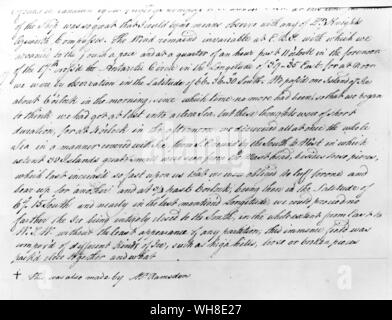 of the Fact was so great that I could by no means observe with any of Dr. Knights
Azimuth Compasses. The Wind remained invariable at E.S.E. with which we
advanced to the South a pace and at a quarter of an hour past 11 oClock in the forenoon
of the 17th cross'd the Antarctic Circle in the Longitude of 39°-35' East for at noon
we were by observation in the Latitude of 66°36'30" South. We pass'd one Island of Ice
about oClock in the morning, since which time no more had been so that we began
to think we had got at last into a clear Sea, but these thoughts were of short
duration, for at oClock in the afternoon, we discovered all at once the whole
Sea in a manner covered with Ice from S.E. round by the South to West in which
extent 38 Islands great & small were seen from the Mast head, besides loose pieces,
which last increased so fast upon us that we were obliged to luff for one and
bear up for another and at past oClock, being then in the Latitude of
67°15' South and nearly in the last mentioned Longitude, we could proceed no
farther the Ice being intirely closed to the South, in the whole extent from East to
W.S.W. without the least appearance of any partition, this immence field was
composed of different kinds of Ice, such as high hills, loose or broken pieces
pack'd close together and what
+ This was also made by Mr. Ramsden
alamy
alamy
Image ID: WH8E27
www.alamy.com